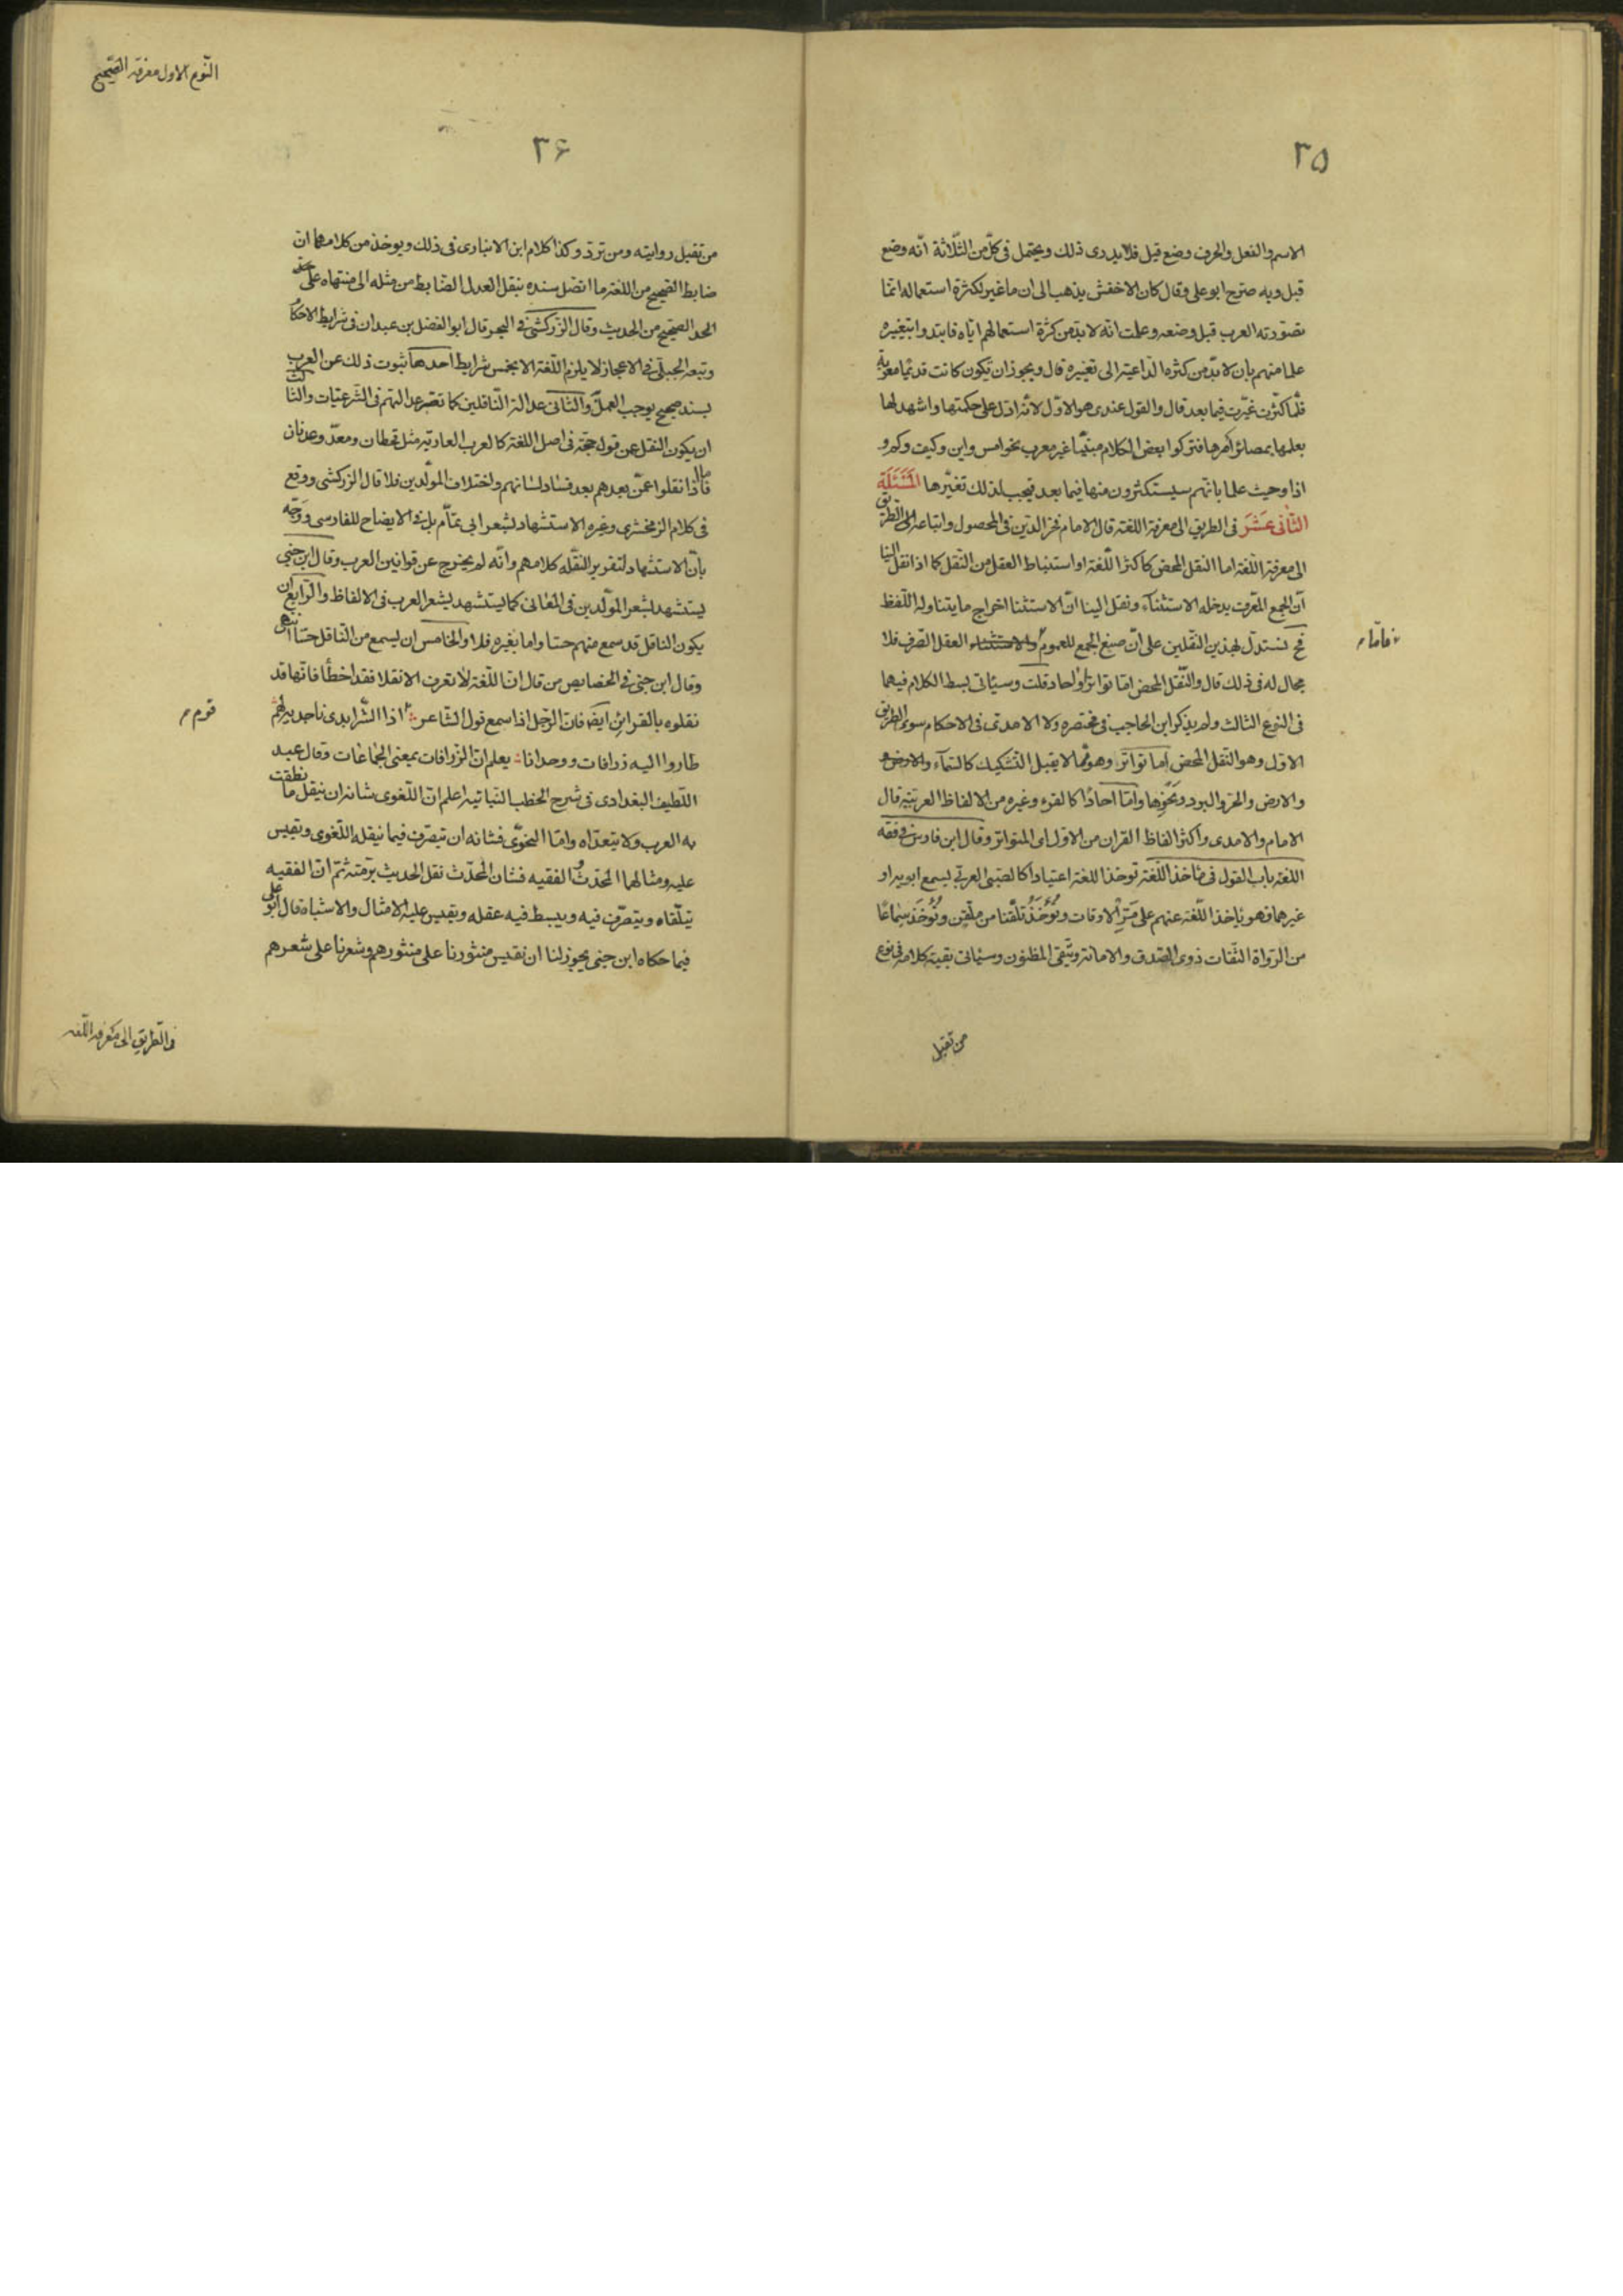 ٣٥
الاسم والفعل والحرف وضع قبل فلا يدرى ذلك ويحتمل فى كلّ من الثّلاثة انّه وضع
قبل وبه صرّح ابو على وقال كان الاخفش يذهب الى ان ما غير لكثرة استعماله انّما
تصوّرته العرب قبل وضعه وعلمت انّه لا بدّ من كثرة استعمالهم ايّاه فابتدوا بتغييره
علما منهم بان لا بدّ من كثرة الدّاعية الى تغييره قال ويجوز ان تكون كانت قديمًا معربة
فلمّا كثرت غيّرت فيما بعد قال والقول عندى هو الاوّل لانّه ادلّ على حكمتها واشهد لها
بعلمها بمصائر امرها فتركوا بعض الكلام مبنيّا غير معرب نحو امس واين وكيف وكم و
اذا وحيث علما بانّهم سيستكثرون منها فيما بعد فيجب لذلك تغيّرها المَسْئَلَة
الثّانى عَشَرَ فى الطريق الى معرفة اللغة قال الامام فخر الدّين فى المحصول واتباعه الطّريق
الى معرفة اللّغة اما النقل المحض كاكثر اللّغة او استنباط العقل من النّقل كما اذا نقل الينا
انّ الجمع المعرّف يدخله الاستثناء ونقل الينا انّ الاستثنا اخراج ما يتناوله اللّفظ
فح نستدلّ بهذين النّقلين على انّ صيغ الجمع للعموم والاستثناء العقل الصّرف فلا
فامّا
مجال له فى ذلك قال والنّقل المحض امّا تواتر او احاد قلت وسيئاتى بسط الكلام فيهما
فى النوع الثالث ولم يذكر ابن الحاجب فى مختصره ولا الامدى فى الاحكام سوى الطّريق
الاوّل وهو النّقل المحض اما تواتر وهو ممّا لا يقبل التّشكيك كالسّمآء والارض
والارض والحرّ والبرد ونحوها وامّا احادًا كالقرء وغيره من الالفاظ العربيّة قال
الامام والامدى واكثر الفاظ القران من الاوّل اى المتواتر وقال ابن فارس فى فقه
اللغة باب القول فى مأخذ اللّغة توخذ اللغة اعتيادًا كالصّبى العربى يسمع ابويه او
غيرهما فهو ياخذ اللّغة عنهم على مَرِّ الاوقات وتُوْخَذُ تلقّنا من ملقّن وتُوْخَذ سماعًا
من الرّواة الثّقات ذوى الصّدق والامانة ويتّقى المظنون وسيئاتى بقية كلامه فى نوع
من تقبل
النّوع الاول معرفة الصّحيح
٣۶
من تقبل روايته ومن تردّ وكذا كلام ابن الانبارى فى ذلك ويوخذ من كلامهما ان
ضابط الصّحيح من اللغة ما اتصل سنده بنقل العدل الضّابط من مثله الى منتهاه على حدّ
الحدّ الصّحيح من الحديث وقال الزّركشى فى البحر قال ابو الفضل بن عبدان فى شرايط الاحكام
وتبعه الجيلى فى الاعجاز لا يلزم اللّغة الا بخمس شرايط احدها ثبوت ذلك عن العرب
بسند صحيح يوجب العمل والثّانى عدالة النّاقلين كما تعتبر عدالتهم فى الشّرعيّات والثّالث
ان يكون النقل عن قوله حجّة فى اصل اللغة كالعرب العاربة مثل قحطان ومعدّ وعدنان
فامّا اذا نقلوا عمّن بعدهم بعد فساد لسانهم واختلاف المولّدين فلا قال الزركشى ووقع
فى كلام الزمخشرى وغيره الاستشهاد بشعر ابى تمّام بل فى الايضاح للفارسى ووَجّه
بانّ الاستشهاد لتقرير النّقله كلامهم وانّه لم يخرج عن قوانين العرب وقال ابن جنى
يستشهد بشعر المولّدين فى المعانى كما يستشهد بشعر العرب فى الالفاظ والرّابع ان
يكون الناقل قد سمع منهم حسّا واما بغيره فلا والخامس ان يسمع من النّاقل حسّا انتهى
وقال ابن جنى فى الخصايص من قال انّ اللّغة لا تعرف الا نقلا فقد اخطأ فانّها قد
نقلوه بالقرائن ايضًا فانّ الرّجل اذا سمع قول الشّاعر اذا الشّر ابدى ناجذيه لهم
قوم
طاروا اليه زرافات ووحدانا يعلم انّ الزّرافات بمعنى الجماعات وقال عبد
اللّطيف البغدادى فى شرح الخطب النّباتية اعلم انّ اللّغوى شانه ان ينقل ما نطقت
به العرب ولا يتعدّاه وامّا النحوّى فشانه ان يتصرّف فيما ينقله اللّغوى ويقيس
عليه ومثالهما المحدّث والفقيه فشان المحدّث نقل الحديث برمّته ثمّ انّ الفقيه
يتلّقاه ويتصرّف فيه ويبسط فيه عقله ويقيس عليه الامثال والاشباه قال ابو على
فيما حكاه ابن جنى يجوز لنا ان نقيس منثورنا على منثورهم وشعرنا على شعرهم
فى الطّريق الى معرفة اللّغة